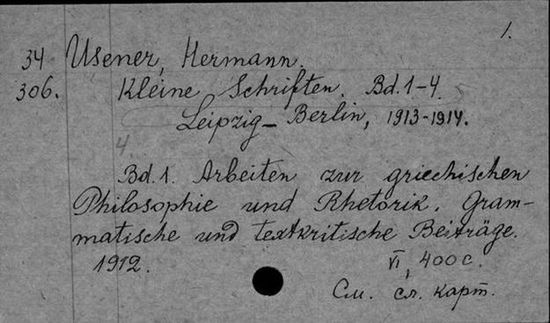 1.
34 Usener, Hermann.
306. Kleine Schriften. Bd. 1-4.
Leipzig-Berlin, 1913-1914.
4
Bd. 1. Arbeiten zur griechischen
Philosophie und Rhetorik. Gram-
matische und textkritische Beiträge.
1912. VI, 400 с.
См. сл. карт.